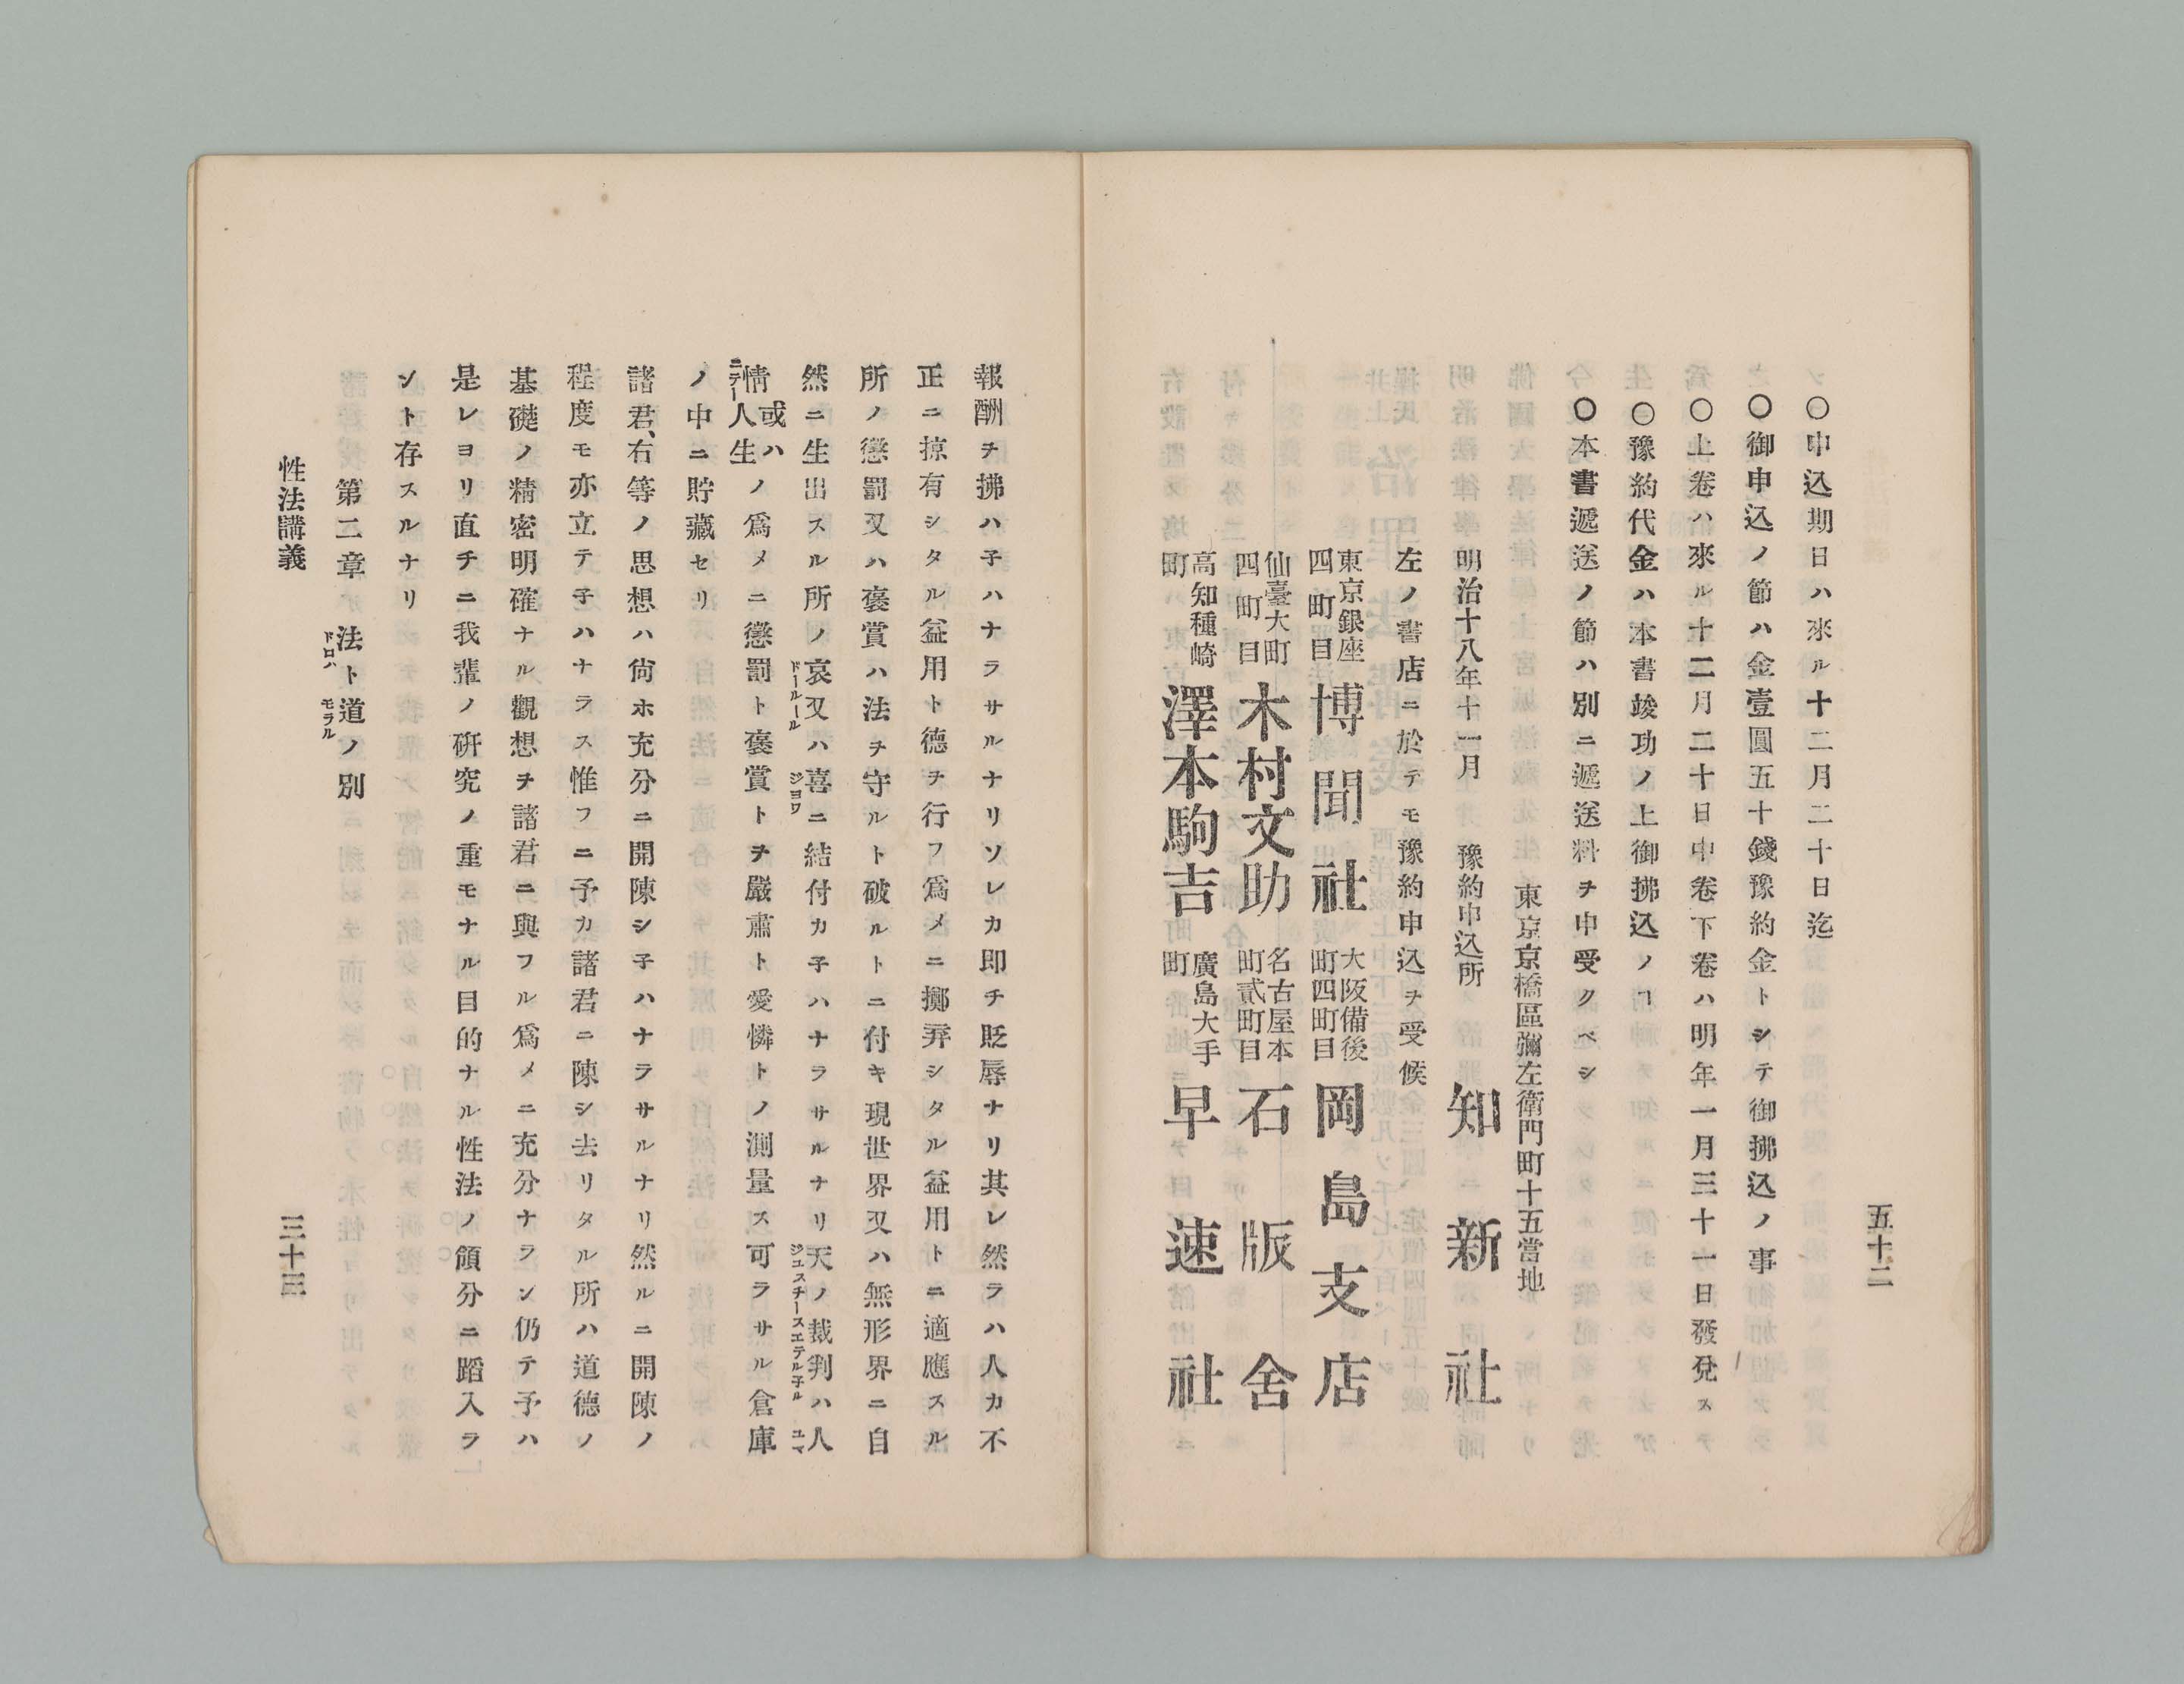 五十二
〇申込期日ハ來ル十二月二十日迄
〇御申込ノ節ハ金壹圓五十錢豫約金トシテ御拂込ノ事
〇上卷ハ來ル十二月二十日中卷下卷ハ明年一月三十一日發兌ステ
〇豫約代金ハ本書竣功ノ上御拂込ノヿ
〇本書遞送ノ節ハ別ニ遞送料ヲ申受クベシ
東京京橋區彌左衛門町十五當地
明治十八年十一月 豫約申込所 知新社
左ノ書店ニ於テモ豫約申込ヲ受候
東京銀座四町目 博聞社 大阪備後町四町目 岡島支店
仙臺大町四町目 木村文助 名古屋本町貳町目 石版舍
高知種崎町 澤本駒吉 廣島大手町 早速社
報酬ヲ拂ハ子ハナラサルナリソレカ即チ貶辱ナリ其レ然ラハ人カ不
正ニ掠有シタル益用ト德ヲ行フ爲メニ擲弃シタル益用トニ適應スル
所ノ懲罰又ハ褒賞ハ法ヲ守ルト破ルトニ付キ現世界又ハ無形界ニ自
然ニ生出スル所ノ哀又ハ喜ニ結付カ子ハナラサルナリ天ノ裁判ハ人
ドールール ジヨワ ジユスチースエテル子ル ユマ
情或ハ人生ノ爲メニ懲罰ト褒賞トヲ嚴肅ト愛憐トノ測量ス可ラサル倉庫
ニテー
ノ中ニ貯藏セリ
諸君、右等ノ思想ハ尙ホ充分ニ開陳シ子ハナラサルナリ然ルニ開陳ノ
程度モ亦立テ子ハナラス惟フニ予カ諸君ニ陳シ去リタル所ハ道德ノ
基礎ノ精密明確ナル觀想ヲ諸君ニ與フル爲メニ充分ナラン仍テ予ハ
是レヨリ直チニ我輩ノ硏究ノ重モナル目的ナル性法ノ領分ニ蹈入ラ
ント存スルナリ
第二章 法ト道ノ別
ドロハ モラル
性法講義
三十三